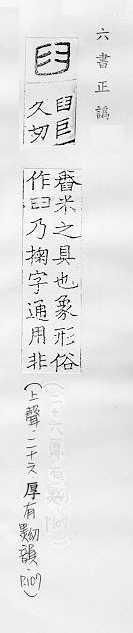 六書正譌
臼
臼巨
久切
舂米之具也象形俗
作𦥑乃掬字通用非
(上聲.二十六厚有黝韻.P.107)